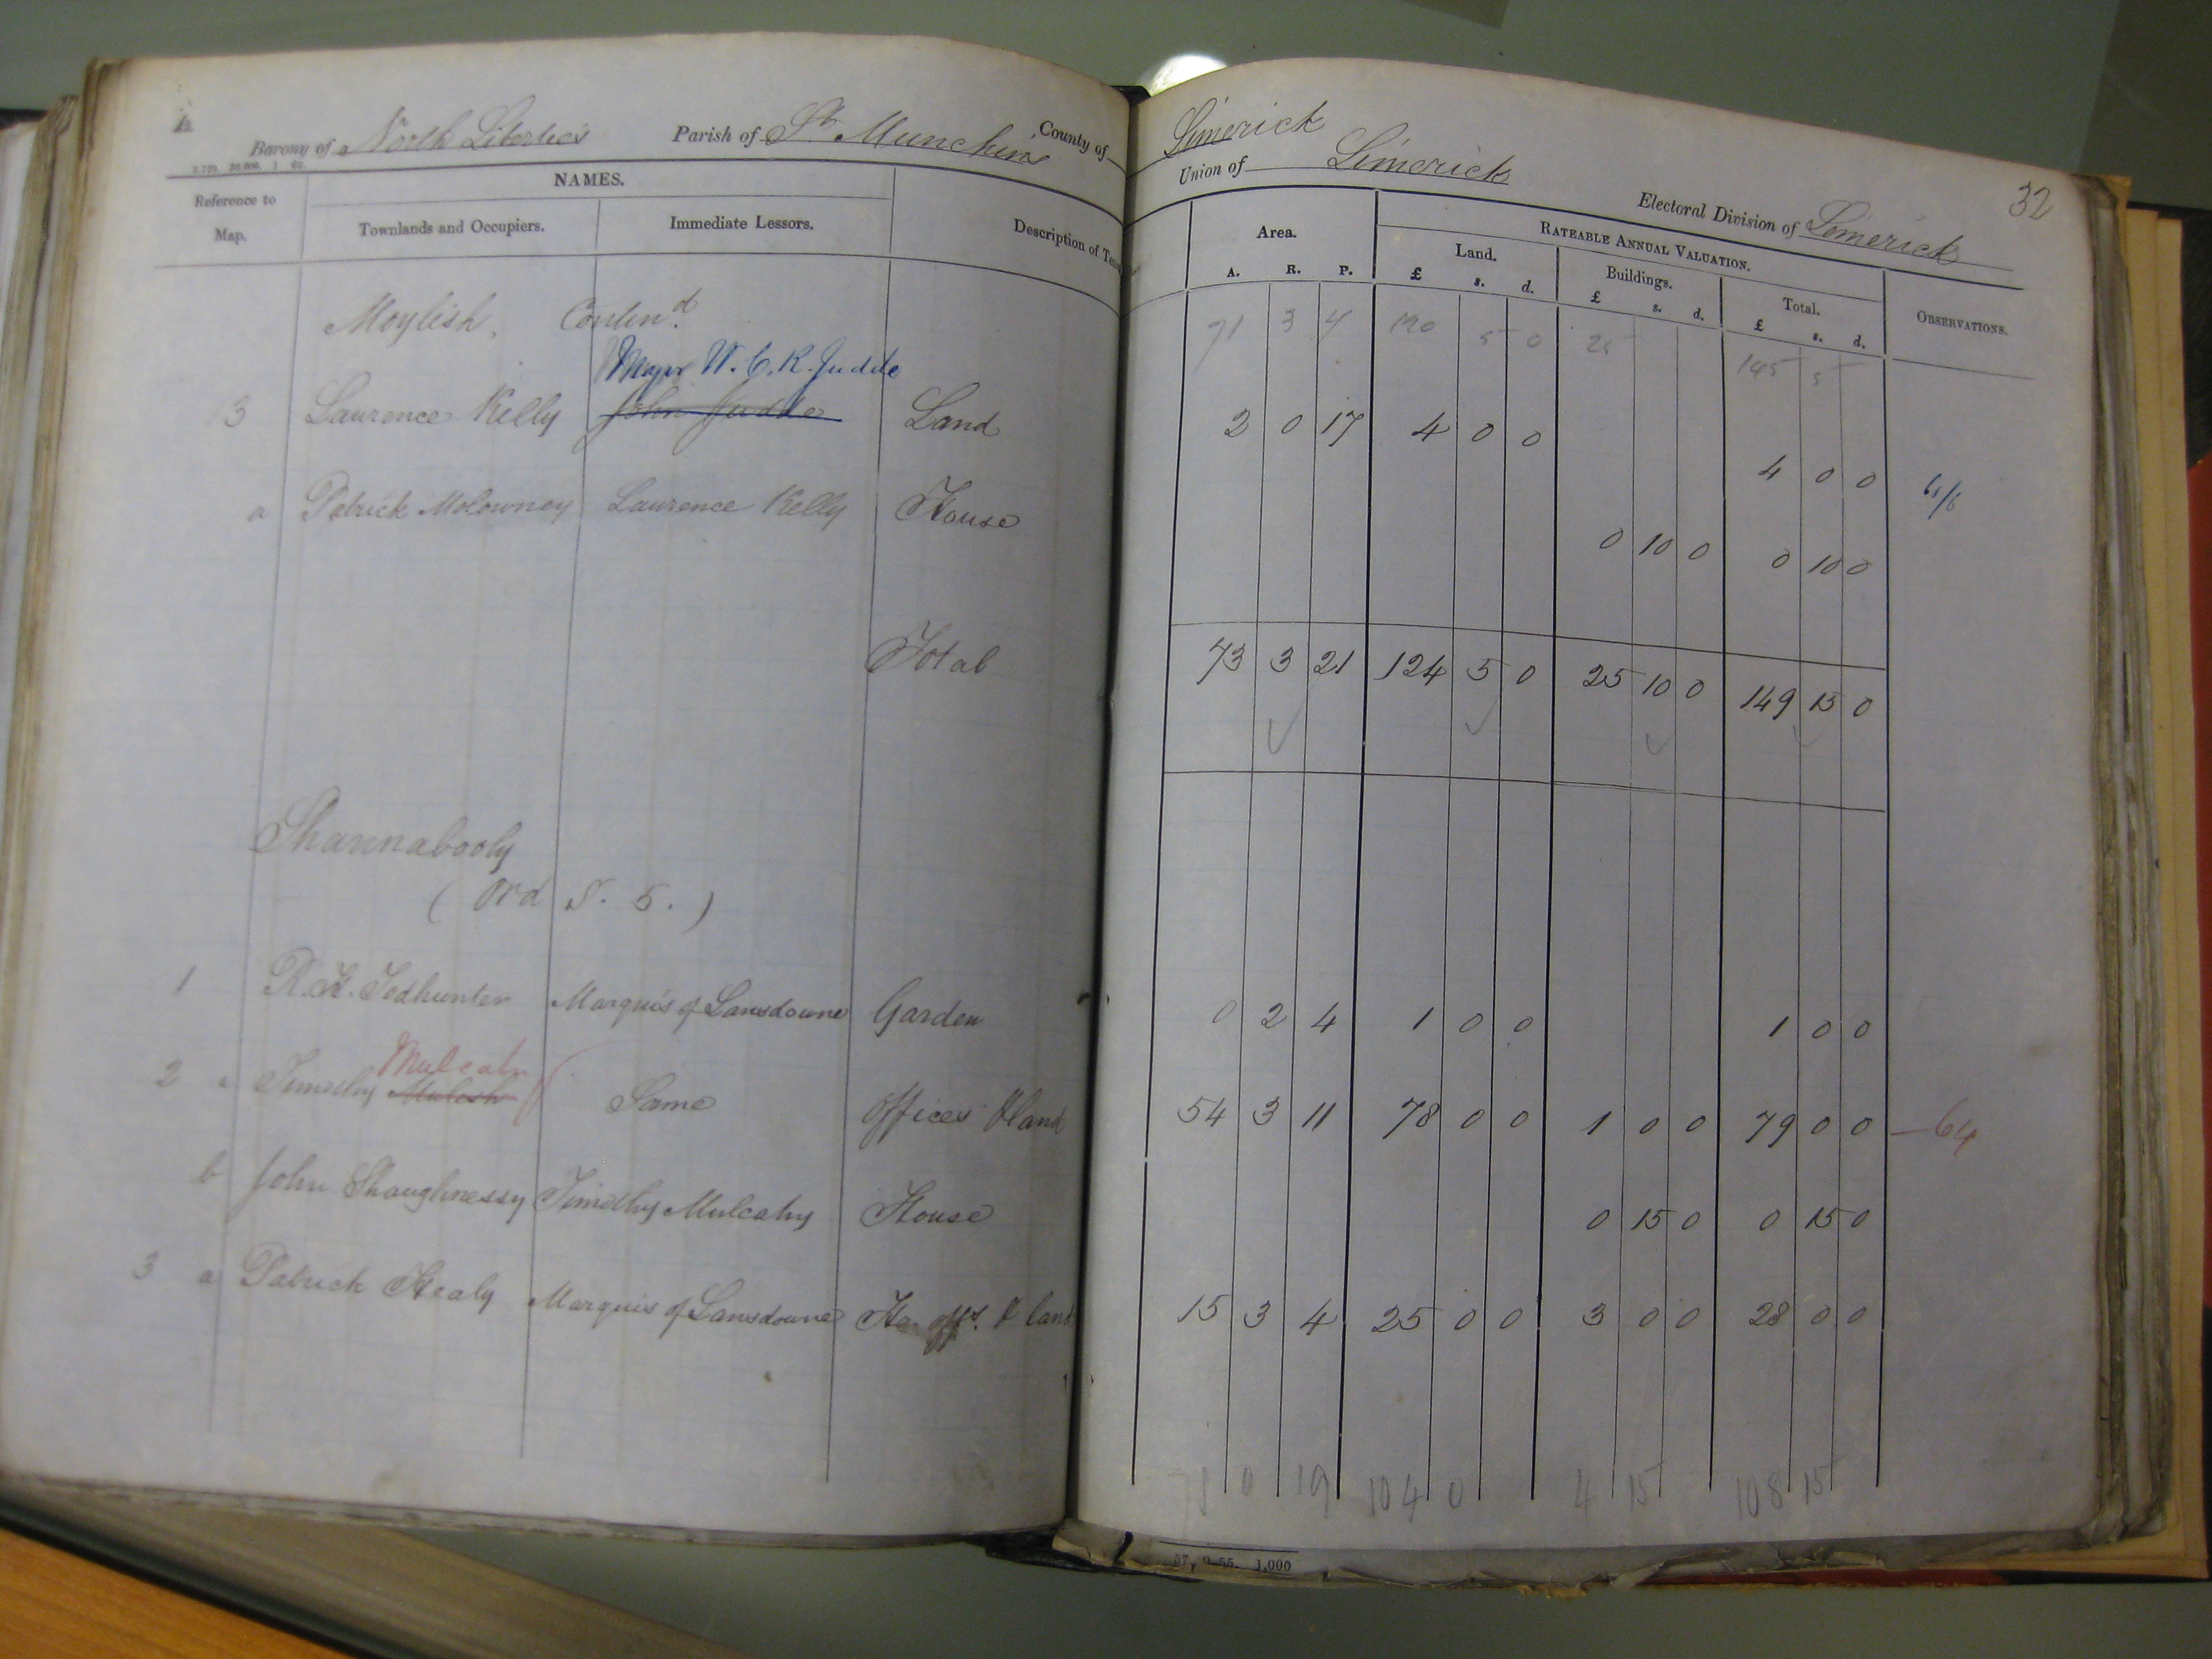 Barony of North Liberties Parish of St. Munchin's County of Limerick
Union of Limerick Electoral Division of Limerick 32
Reference to Map. NAMES. Description of Ten Area. RATEABLE ANNUAL VALUATION. OBSERVATIONS.
Townlands and Occupiers. Immediate Lessors. Land. Buildings. Total.
A. R. P. £ s. d. £ s. d. £ s. d.
Moylish. Contin.d 71 3 4 120 5 0 25 145 5
Major W. C. R. Judde
13 Laurence Kelly John Judde Land 2 0 17 4 0 0 4 0 0
a Patrick Molowney Laurence Kelly House 0 10 0 0 10 0
Total 73 3 21 124 5 0 25 10 0 149 15 0
Shannabooly
(Ord S. 5.)
1 R. H. Todhunter Marquis of Lansdowne Garden 0 2 4 1 0 0 1 0 0
2 a Timothy Same Offices & land 54 3 11 78 0 0 1 0 0 79 0 0 —64
b John Shaughnessy Timothy Mulcahy House 0 15 0 0 15 0
3 a Patrick Healy Marquis of Lansdowne Ho. offs. & land 15 3 4 25 0 0 3 0 0 28 0 0
71 0 19 104 0 4 15 108 15
1,000